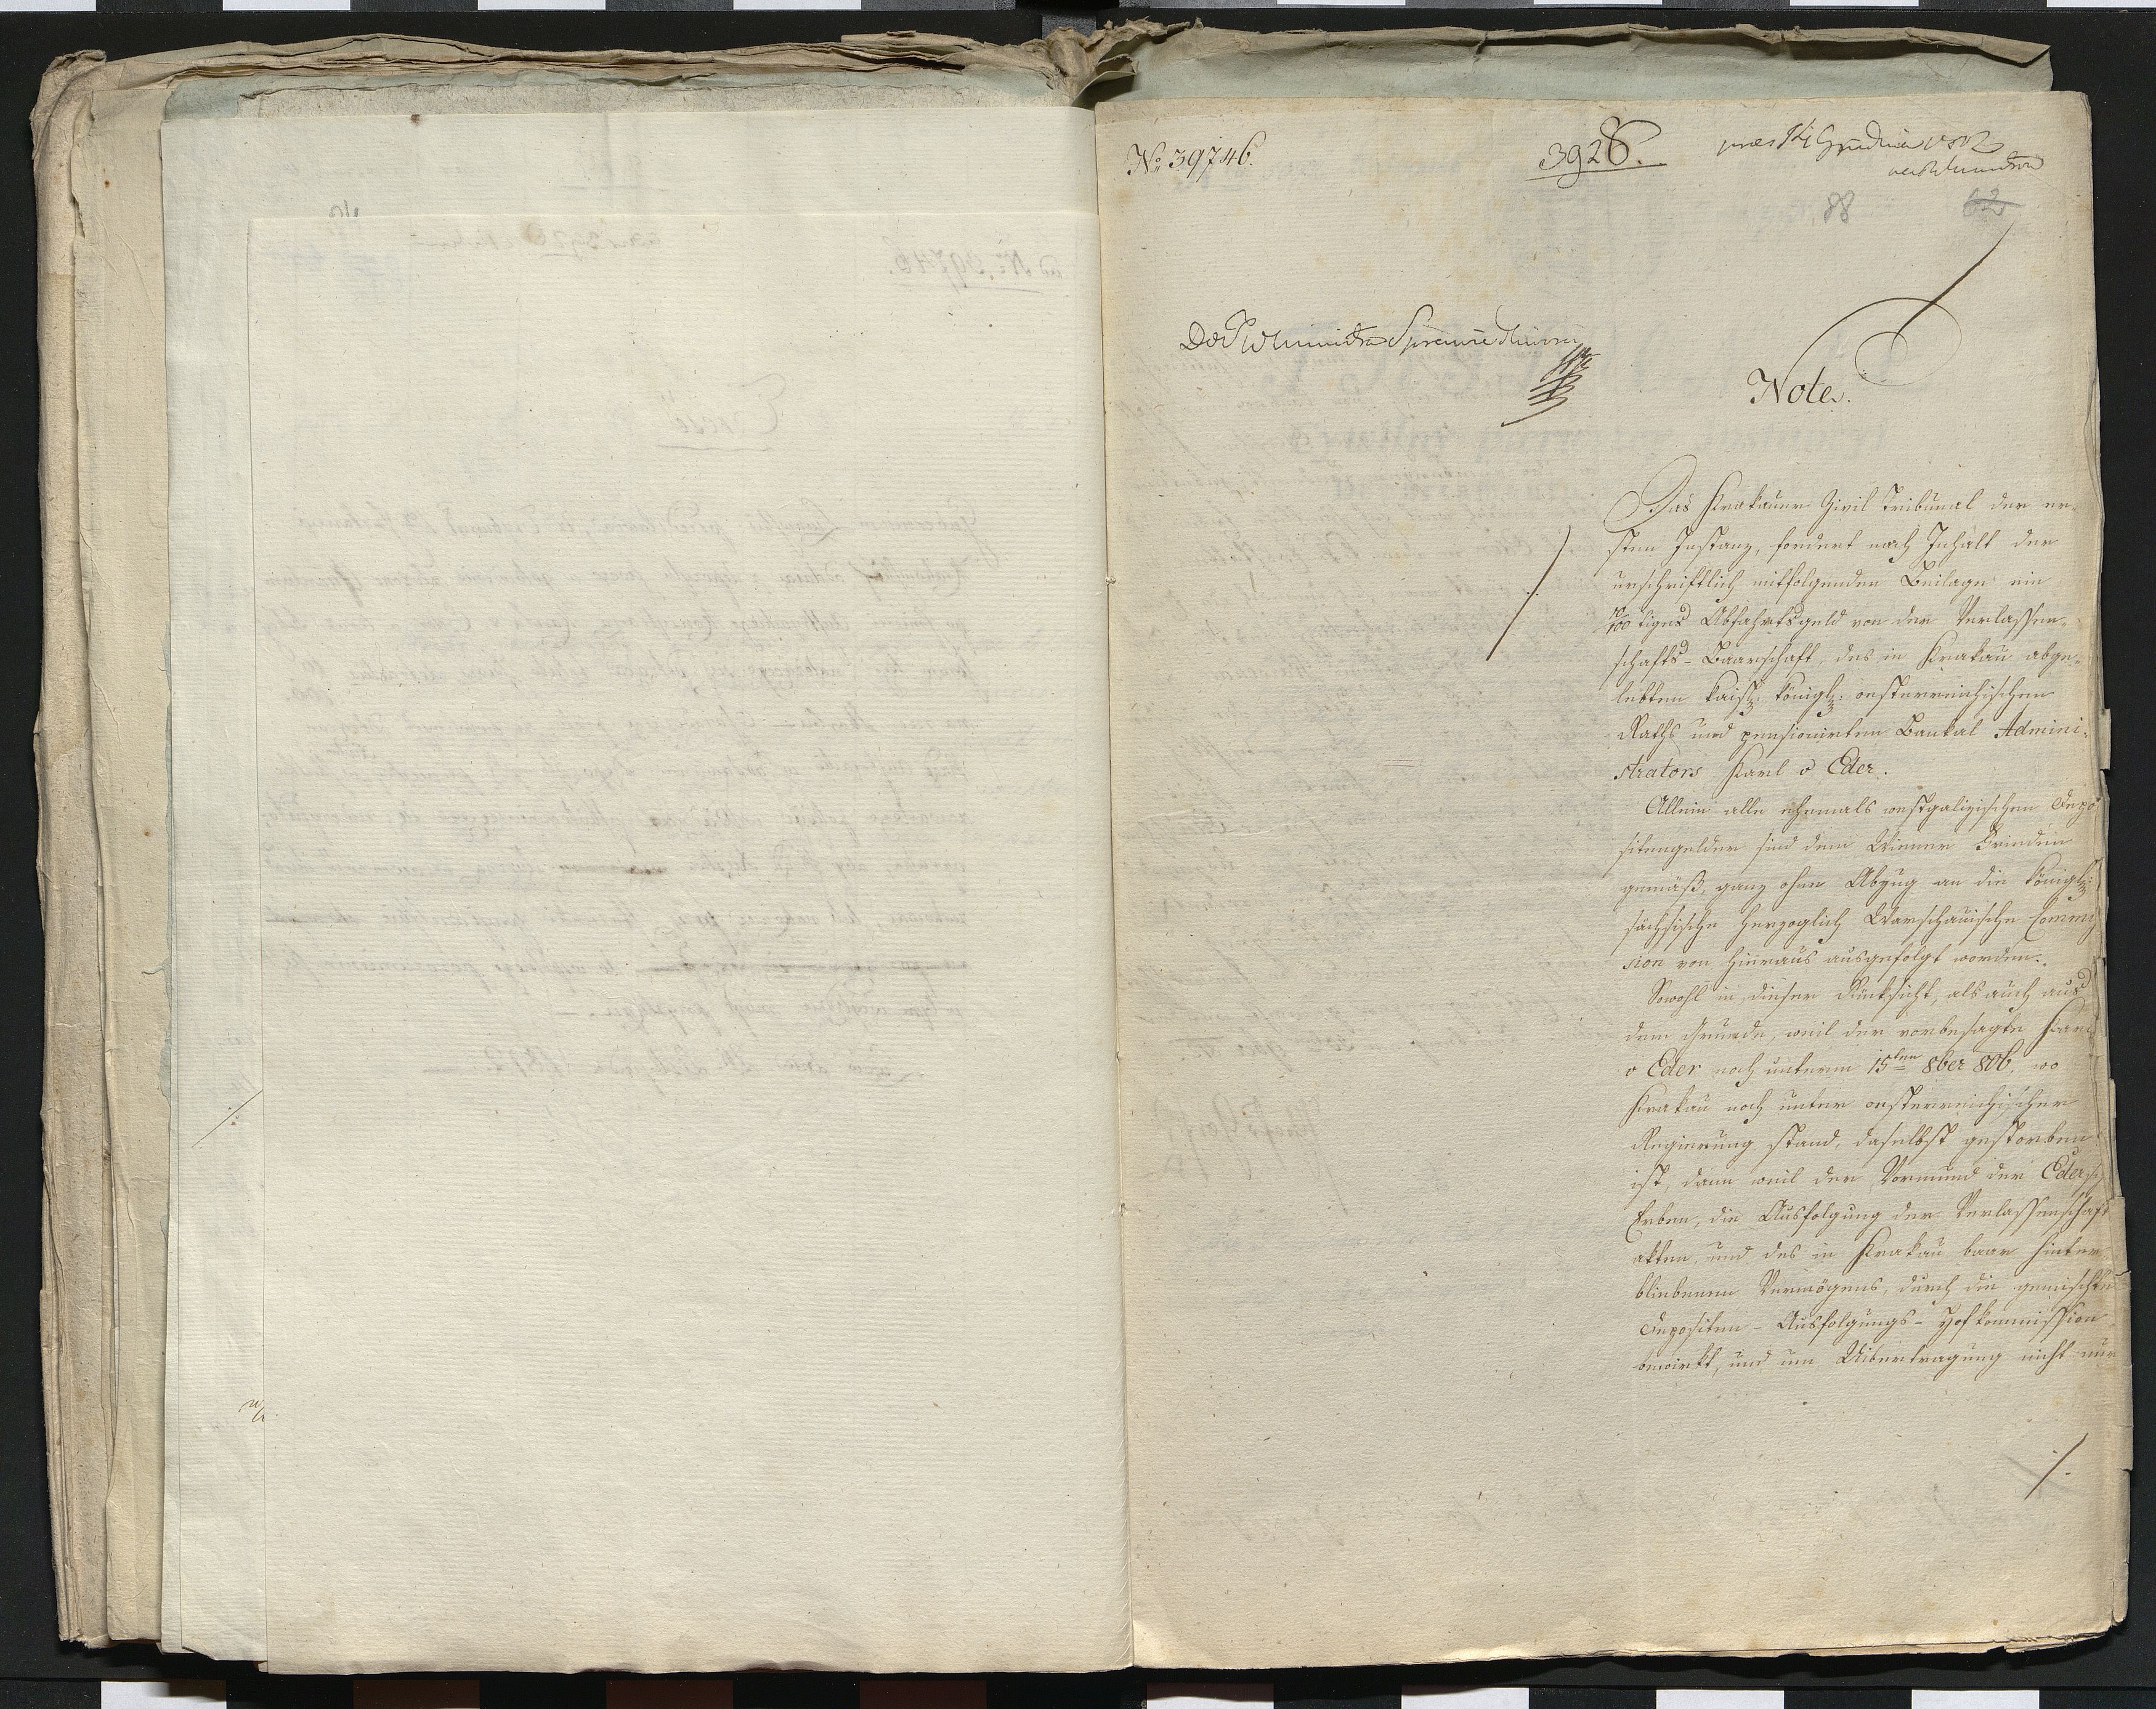 No 39746.
3928.
pres 14 Grudnia 1812
88
62
Do JW Ministra Sprawiedliwości
Note.
Das Krakauer Zivil Tribunal der er-
sten Instanz, fordert nach Inhalt der
urschriftlich mitfolgenden Beilage ein
10/100 tiges Abfahrtsgeld von der Verlassen-
schafts-Baarschaft, des in Krakau abge-
lebten kaisl: königl: oesterreichischen
Raths und pensionirten Bankal Admini-
strators Karl v Eder.
Allein alle ehemals westgalizischen Depo
sitengelder sind dem Wiener Frieden
gemäß, ganz ohne Abzug an die königl:
sächsische herzoglich Warschauische Commis
sion von hieraus ausgefolgt worden.
Sowohl in dieser Rücksicht, als auch aus
dem Grunde, weil der vorbesagte Karl
v Eder noch unterm 15ten 8ber 806, wo
Krakau noch unter oesterreichischer
Regierung stand, daselbst gestorben
ist, dann weil der Vormund der Edersch
Erben, die Ausfolgung der Verlassenschaft
akten, und des in Krakau baar hinter-
bliebenen Vermögens, durch die gemischte
Depositen-Ausfolgungs-Hofkommission
bewirkt, und um Uibertragung nicht nur
./.